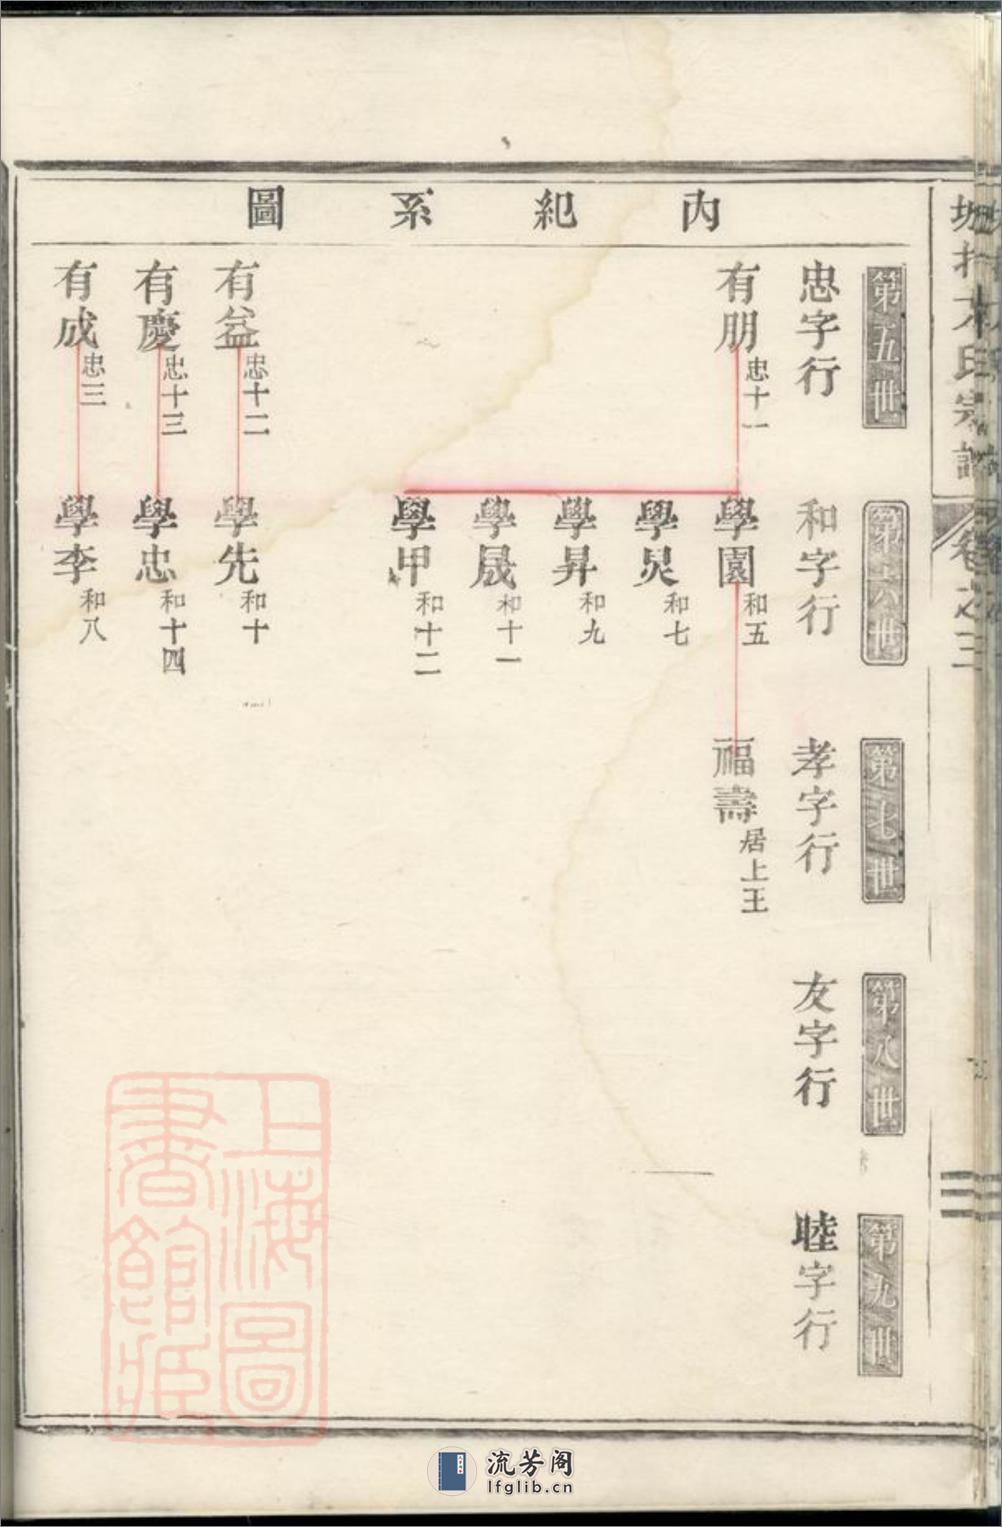 內紀系圖
第五世
第六世
第七世
第八世
第九世
忠字行
和字行
孝字行
友字行
睦字行
有朋
忠十一
學園
和五
福壽
居上王
學炅
和七
學昇
和九
學晟
和十一
學甲
和十二
有益
忠十二
學先
和十
有慶
忠十三
學忠
和十四
有成
忠三
學李
和八
氏宗譜
卷之三
上海圖書館藏
流芳阁
lfglib.cn